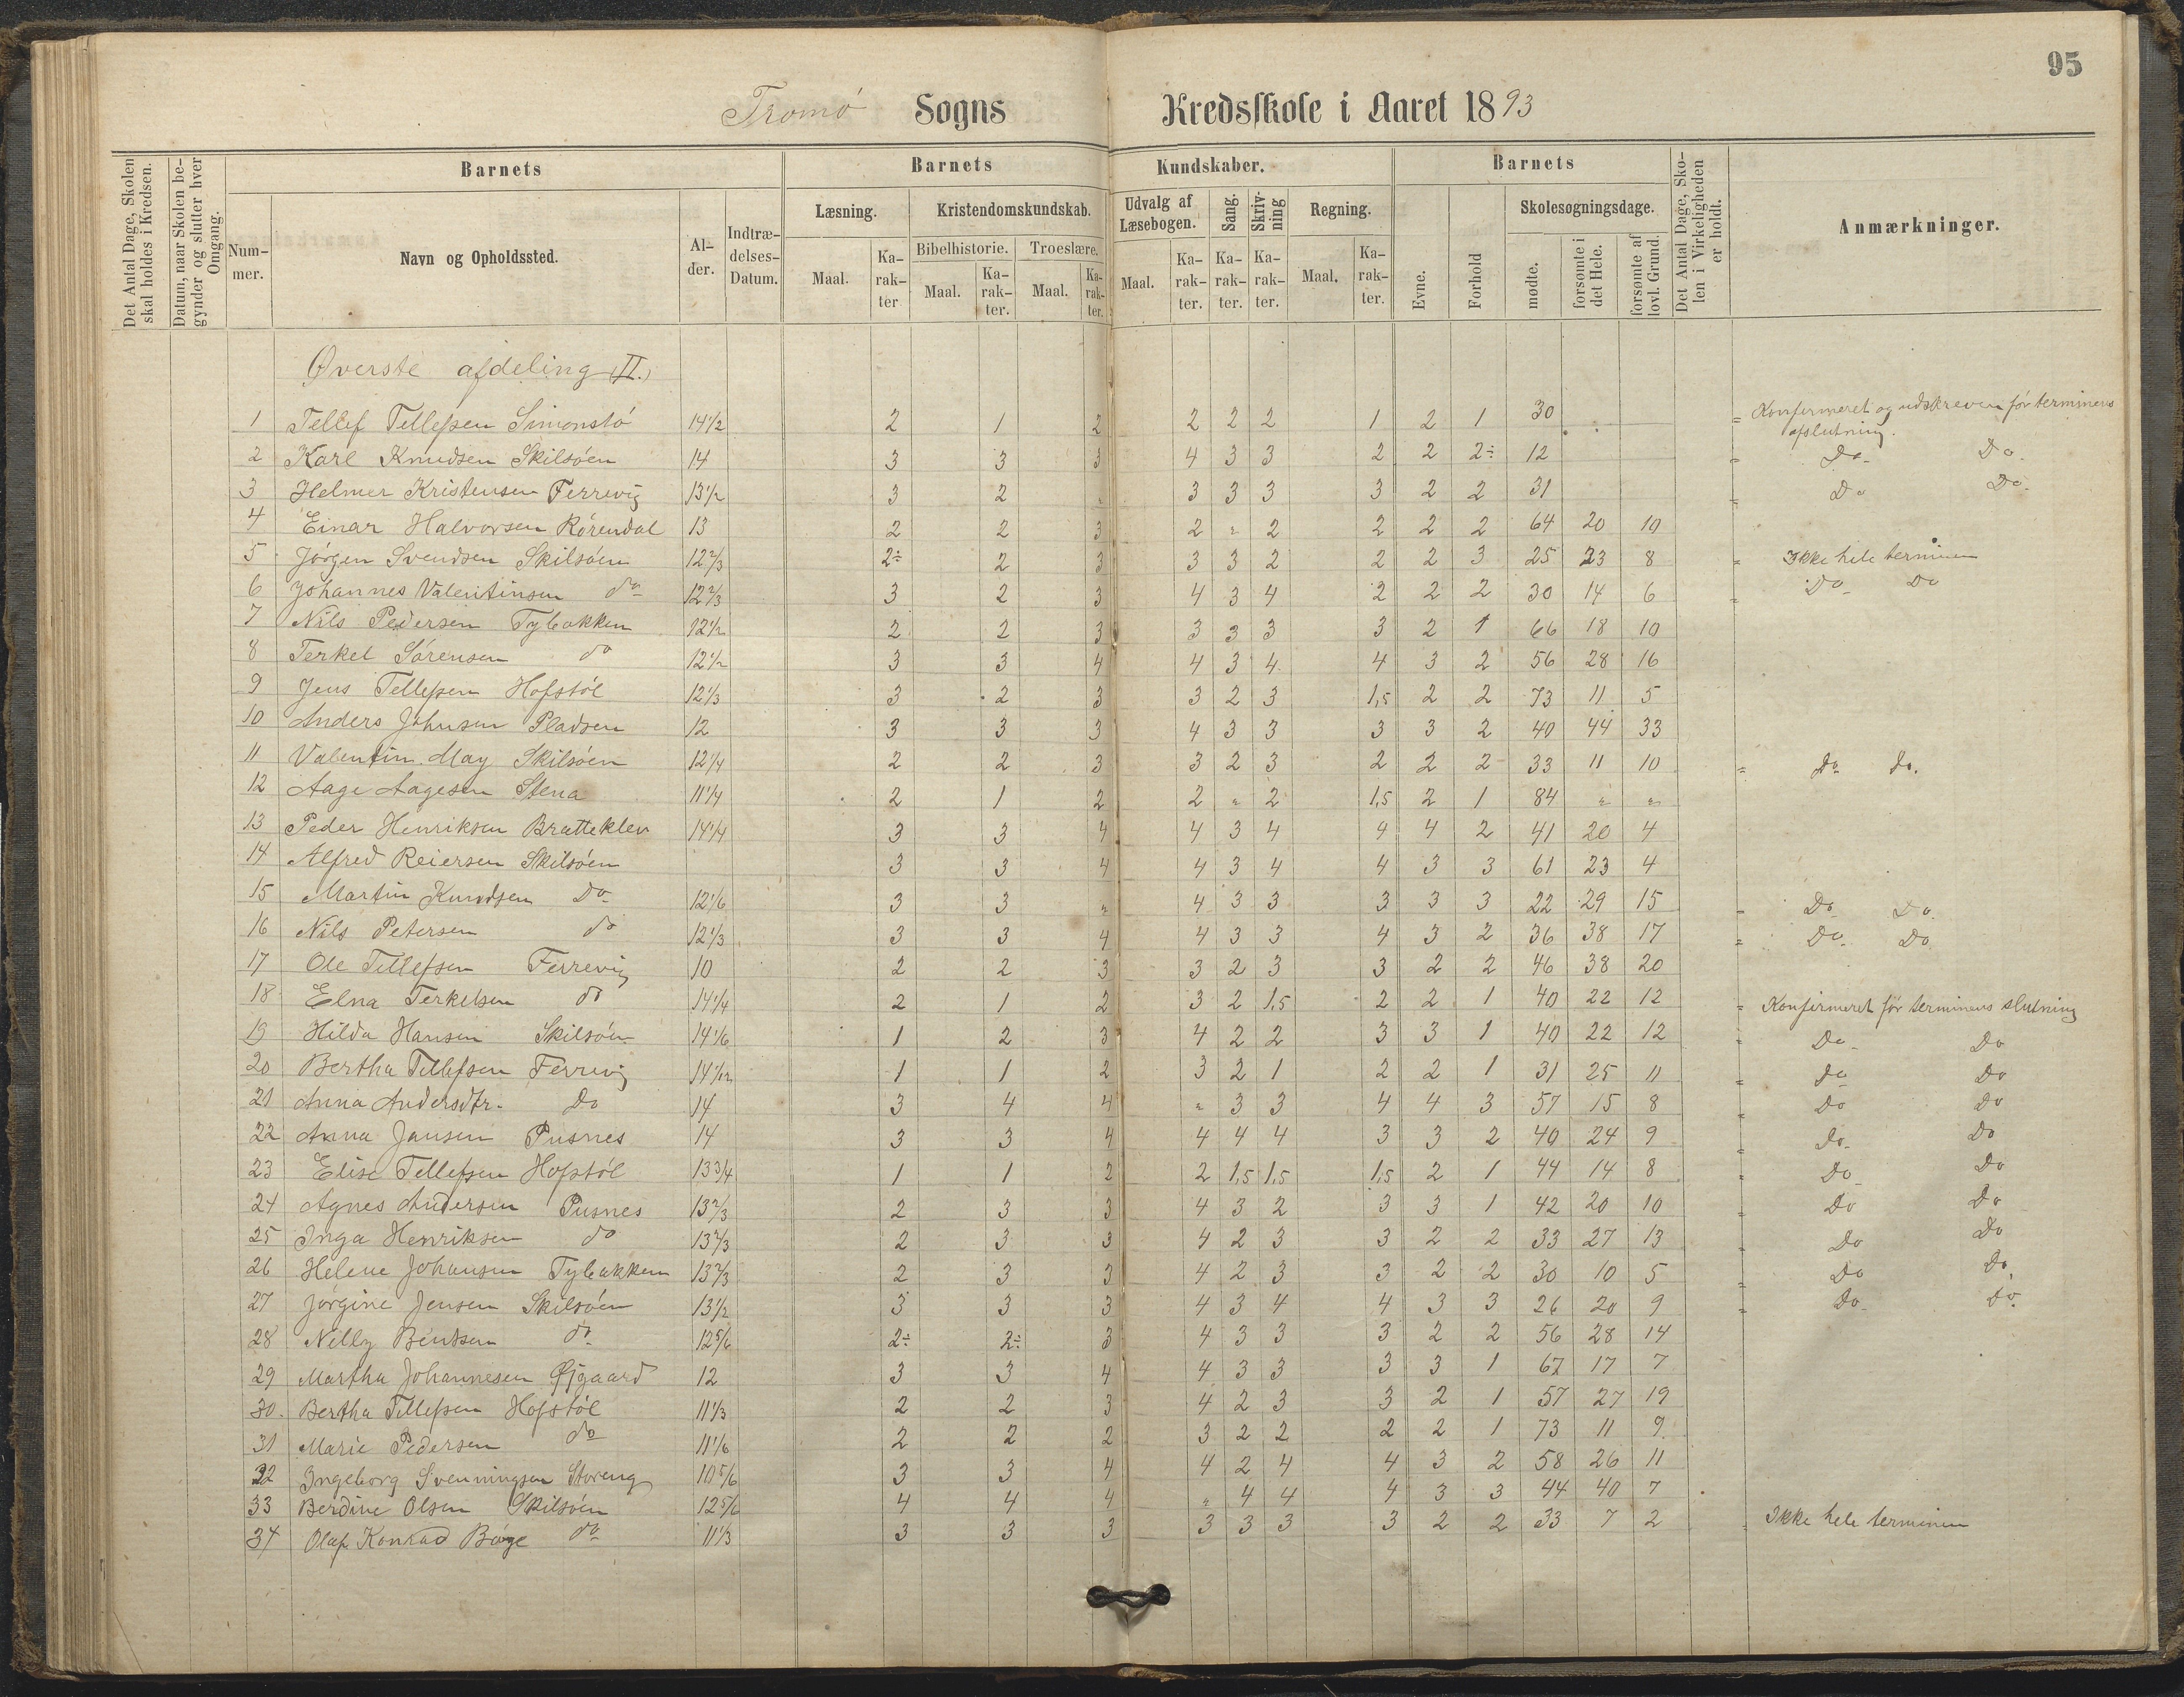 95
Tromö Sogns Kredsskole i Aaret 1893
Det Antal Dage, Skolen skal holdes i Kredsen.
Datum, naar Skolen begynder og slutter hver Omgang.
Barnets
Barnets Kundskaber.
Barnets
Det Antal Dage, Skolen i Virkeligheden er holdt.
Anmærkninger.
Nummer.
Navn og Opholdssted.
Alder.
Indtrædelses-Datum.
Læsning.
Kristendomskundskab.
Udvalg af Læsebogen.
Sang.
Skrivning
Regning.
Evne.
Forhold
Skolesøgningsdage.
Bibelhistorie.
Troeslære.
Maal.
Karakter
Maal.
Karakter.
Maal.
Karakter.
Maal.
Karakter.
Karakter.
Karakter.
Maal.
Karakter.
mødte.
forsømte i det Hele.
forsømte af lovl. Grund.
Øverste afdeling (II.)
1 Tellef Tellefsen Simonstö 14 1/2 2 1 2 2 2 2 1 2 1 30 " Konfirmeret og udskreven för terminens afslutning.
2 Karl Knudsen Skilsöen 14 3 3 3 4 3 3 2 2 2÷ 12 " Do Do.
3 Helmer Kristensen Ferrevig 13 1/2 3 2 " 3 3 3 3 2 2 31 " Do Do.
4 Einar Halvorsen Rörendal 13 2 2 3 2 " 2 2 2 2 64 20 10
5 Jörgen Svendsen Skilsöen 12 2/3 2÷ 2 3 3 3 2 2 2 3 25 23 8 " Ikke hele terminen
6 Johannes Valentinsen do 12 2/3 3 2 3 4 3 4 2 2 2 30 14 6 " Do Do
7 Nils Pedersen Tybakken 12 1/2 2 2 3 3 3 3 3 2 1 66 18 10
8 Terkel Sörensen do 12 1/2 3 3 4 4 3 4 4 3 2 56 28 16
9 Jens Tellefsen Hofstöl 12 1/3 3 2 3 3 2 3 1,5 2 2 73 11 5
10 Anders Johnsen Pladsen 12 3 3 3 4 3 3 3 3 2 40 44 33
11 Valentin May Skilsöen 12 1/4 2 2 3 3 2 3 2 2 2 33 11 10 " do do.
12 Aage Aagesen Stena 11 1/4 2 1 2 2 " 2 1,5 2 1 84 " "
13 Peder Henriksen Bratteklev 14 1/4 3 3 4 4 3 4 4 4 2 41 20 4
14 Alfred Reiersen Skilsöen 3 3 4 4 3 4 4 3 3 61 23 4
15 Martin Knudsen Do 12 1/6 3 3 " 4 3 3 3 3 3 22 29 15 " Do Do.
16 Nils Petersen do 12 1/3 3 3 4 4 3 3 4 3 2 36 38 17 " Do. Do
17 Ole Tellefsen Ferrevig 10 2 2 3 3 2 3 3 2 2 46 38 20
18 Elna Terkelsen do 14 1/4 2 1 2 3 2 1,5 2 2 1 40 22 12 " Konfirmeret för terminens slutning
19 Hilda Hansen Skilsöen 14 1/6 1 2 3 4 2 2 3 3 1 40 22 12 " Do Do
20 Bertha Tellefsen Ferrevig 14 1/12 1 1 2 3 2 1 2 2 1 31 25 11 " Do Do
21 Anna Andersdtr. Do 14 3 4 4 " 3 3 4 4 3 57 15 8 " Do Do
22 Anna Jansen Pusnes 14 3 3 4 4 4 4 3 3 2 40 24 9 " Do. Do
23 Elise Tellefsen Hofstöl 13 3/4 1 1 2 2 1,5 1,5 1,5 2 1 44 14 8 " Do Do
24 Agnes Andersen Pusnes 13 2/3 2 3 3 4 3 2 3 3 1 42 20 10 " Do Do
25 Inga Henriksen do 13 2/3 2 3 3 4 2 3 3 2 2 33 27 13 " Do Do
26 Helene Johansen Tybakken 13 2/3 2 3 3 4 2 3 3 2 2 30 10 5 " Do Do.
27 Jörgine Jensen Skilsöen 13 1/2 3 3 3 4 3 4 4 3 3 26 20 9 " Do Do.
28 Nelly Bentsen do 12 5/6 2÷ 2÷ 3 4 3 3 3 2 2 56 28 14
29 Martha Johannesen Øjgaard 12 3 3 4 4 3 3 3 3 1 67 17 7
30. Bertha Tellefsen Hofstöl 11 1/3 2 2 3 4 2 3 3 2 1 57 27 19
31 Marie Pedersen do 11 1/6 2 2 2 3 2 2 2 2 1 73 11 9
32 Ingeborg Svenningsen Storeng 10 5/6 3 3 4 4 2 4 4 3 2 58 26 11
33 Berdine Olsen Skilsöen 12 5/6 4 4 4 " 4 4 4 3 3 44 40 7
34 Olaf Konrad Böge do 11 1/3 3 3 3 3 3 3 3 2 2 33 7 2 " Ikke hele terminen